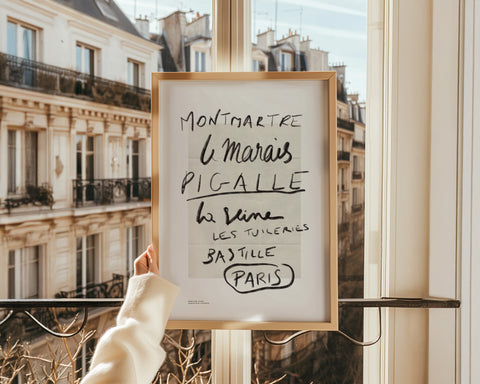 MONTMARTRE
le Marais
PIGALLE
la Seine
LES TUILERIES
BASTILLE
PARIS